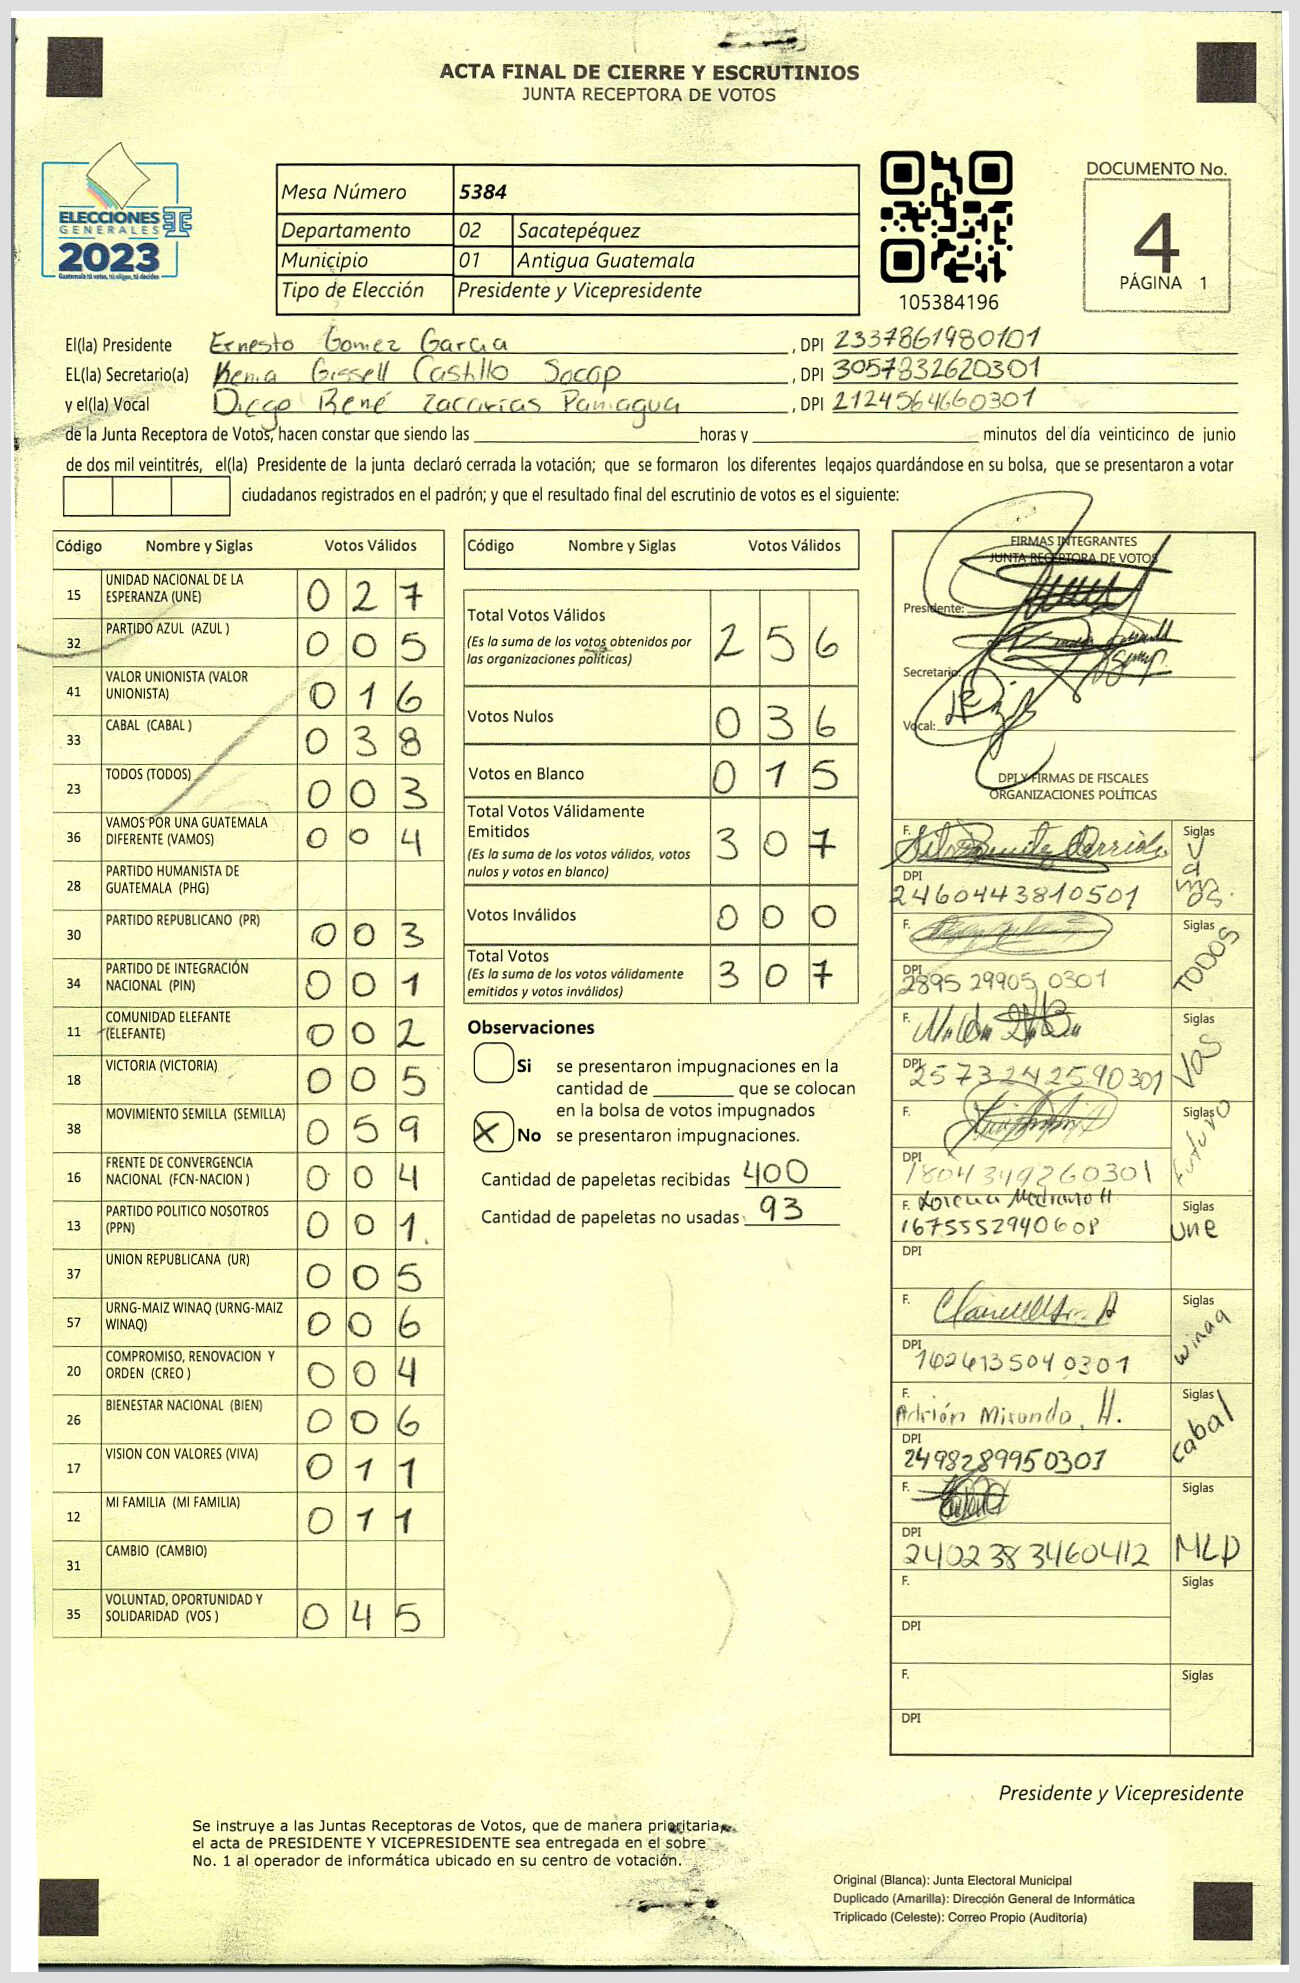 ACTA FINAL DE CIERRE Y ESCRUTINIOS
JUNTA RECEPTORA DE VOTOS
ELECCIONES
GENERALES
2023
Guatemala tú votas, tú eliges, tú decides
Mesa Número 5384
Departamento 02 Sacatepéquez
Municipio 01 Antigua Guatemala
Tipo de Elección Presidente y Vicepresidente
105384196
DOCUMENTO No.
4
PÁGINA 1
El(la) Presidente Ernesto Gomez Garcia , DPI 2337861980101
EL(la) Secretario(a) Kenia Gissell Castillo Socop , DPI 3057832620301
y el(la) Vocal Diego René Zacarias Paniagua , DPI 2124564660301
de la Junta Receptora de Votos, hacen constar que siendo las horas y minutos del día veinticinco de junio
de dos mil veintitrés, el(la) Presidente de la junta declaró cerrada la votación; que se formaron los diferentes legajos guardándose en su bolsa, que se presentaron a votar
ciudadanos registrados en el padrón; y que el resultado final del escrutinio de votos es el siguiente:
Código Nombre y Siglas Votos Válidos
15 UNIDAD NACIONAL DE LA ESPERANZA (UNE) 0 2 7
32 PARTIDO AZUL (AZUL ) 0 0 5
41 VALOR UNIONISTA (VALOR UNIONISTA) 0 1 6
33 CABAL (CABAL ) 0 3 8
23 TODOS (TODOS) 0 0 3
36 VAMOS POR UNA GUATEMALA DIFERENTE (VAMOS) 0 0 4
28 PARTIDO HUMANISTA DE GUATEMALA (PHG)
30 PARTIDO REPUBLICANO (PR) 0 0 3
34 PARTIDO DE INTEGRACIÓN NACIONAL (PIN) 0 0 1
11 COMUNIDAD ELEFANTE (ELEFANTE) 0 0 2
18 VICTORIA (VICTORIA) 0 0 5
38 MOVIMIENTO SEMILLA (SEMILLA) 0 5 9
16 FRENTE DE CONVERGENCIA NACIONAL (FCN-NACION ) 0 0 4
13 PARTIDO POLITICO NOSOTROS (PPN) 0 0 1.
37 UNION REPUBLICANA (UR) 0 0 5
57 URNG-MAIZ WINAQ (URNG-MAIZ WINAQ) 0 0 6
20 COMPROMISO, RENOVACION Y ORDEN (CREO ) 0 0 4
26 BIENESTAR NACIONAL (BIEN) 0 0 6
17 VISION CON VALORES (VIVA) 0 1 1
12 MI FAMILIA (MI FAMILIA) 0 1 1
31 CAMBIO (CAMBIO)
35 VOLUNTAD, OPORTUNIDAD Y SOLIDARIDAD (VOS ) 0 4 5
Código Nombre y Siglas Votos Válidos
Total Votos Válidos 2 5 6
(Es la suma de los votos obtenidos por
las organizaciones políticas)
Votos Nulos 0 3 6
Votos en Blanco 0 1 5
Total Votos Válidamente
Emitidos 3 0 7
(Es la suma de los votos válidos, votos
nulos y votos en blanco)
Votos Inválidos 0 0 0
Total Votos 3 0 7
(Es la suma de los votos válidamente
emitidos y votos inválidos)
Observaciones
Si se presentaron impugnaciones en la
cantidad de que se colocan
en la bolsa de votos impugnados
X No se presentaron impugnaciones.
Cantidad de papeletas recibidas 400
Cantidad de papeletas no usadas 93
FIRMAS INTEGRANTES
JUNTA RECEPTORA DE VOTOS
Presidente:
Secretario:
Vocal:
DPI Y FIRMAS DE FISCALES
ORGANIZACIONES POLÍTICAS
F. Siglas Vamos.
DPI 2460443810501
F. Siglas TODOS
DPI 2895 29905 0301
F. Siglas VOS
DPI 2573242590301
F. Siglas Futuro
DPI 1804349260301
F. Lorena Medrano H Siglas une
1675552940608
DPI
F. Siglas winaq
DPI 1626135040301
F. Adrión Miranda, H. Siglas cabal
DPI 2498289950301
F. Siglas MLP
DPI 2402383460412
F. Siglas
DPI
F. Siglas
DPI
Presidente y Vicepresidente
Se instruye a las Juntas Receptoras de Votos, que de manera prioritaria,
el acta de PRESIDENTE Y VICEPRESIDENTE sea entregada en el sobre
No. 1 al operador de informática ubicado en su centro de votación.
Original (Blanca): Junta Electoral Municipal
Duplicado (Amarilla): Dirección General de Informática
Triplicado (Celeste): Correo Propio (Auditoría)